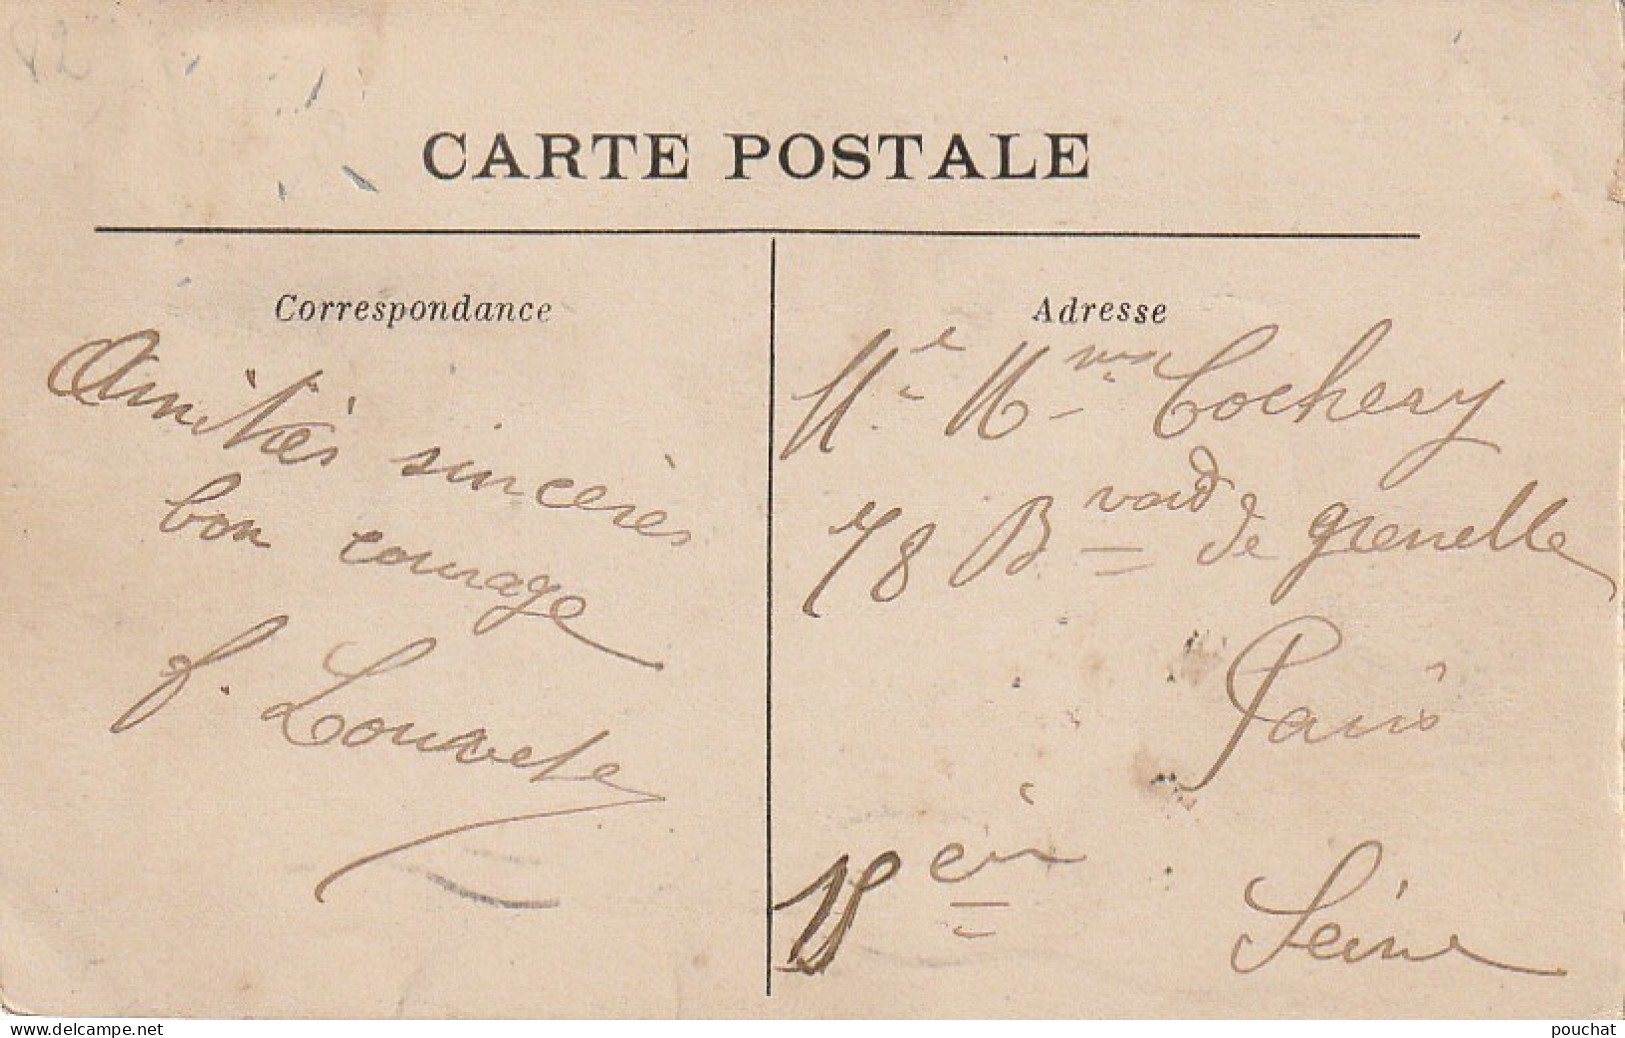 82
CARTE POSTALE
Correspondance
Amitiés sincères
bon courage
f. Louvete
Adresse
M. e Mme Cochery
78 Bvard de grenelle
Paris
15 eme
Seine
www.delcampe.net
pouchat